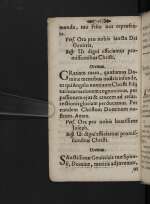 mundo, me tibi non
Pres. Ora pro nobis sancta Dei
Genitrix.
Resp. Ut digni efficiamur pro-
missionibus Christi.
Oremus.
GRatiam tuam, quæsumus Do-
mine mentibus nostris infunde,
ut qui Angelo nuntiante Christi Filij
tui incarnationem cognovimus, per
passionem ejus & crucem ad resur-
rectionis gloriam perducamur. Per
eundem Christum Dominum no-
strum. Amen.
Pres. Ora pro nobis beatissime
Joseph.
Resp. Ut digni efficiamur promis-
sionibus Christi.
Oremus.
SAnctissimæ Genitricis tuæ Spon-
si, Domine, meritis adjuvemur,
ut